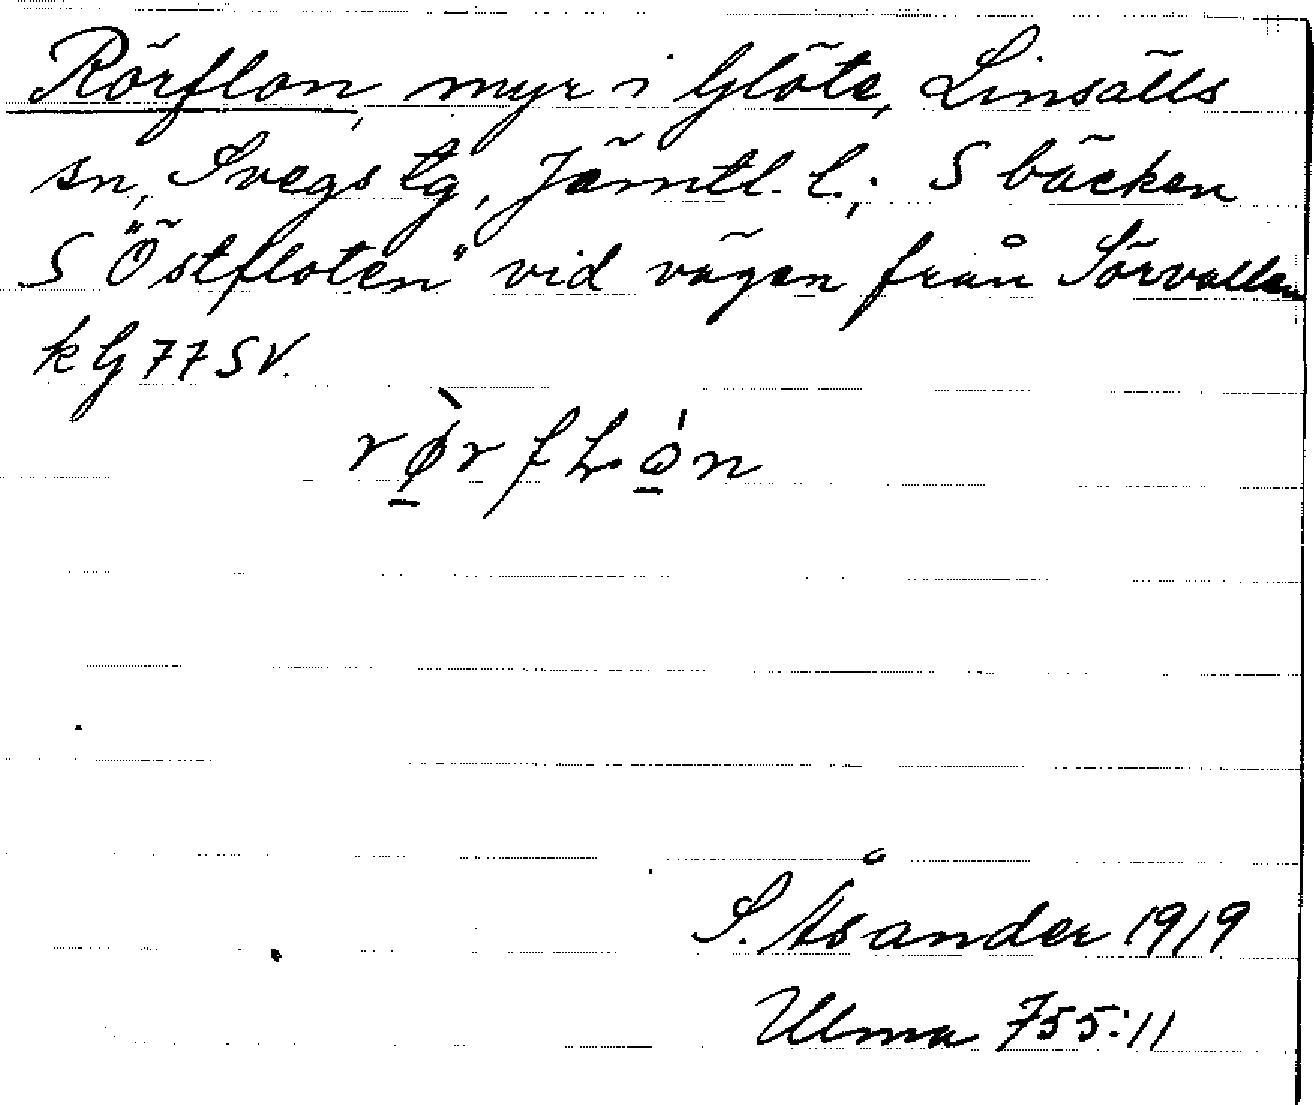 Rörflon, myr i Glöte, Linsälls
sn, Svegs tg, Jämtl. l.; S bäcken
S "Östfloten" vid vägen från Sörvallen
k G 77 SV.
rø̠̀rfⱢo̠̍n
S. Åsander 1919
Ulma 755:11